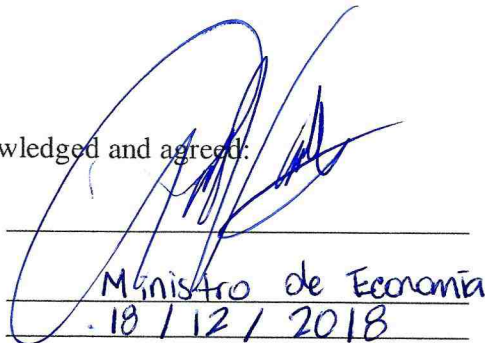 wledged and agreed:
Ministro de Economía
18 / 12 / 2018